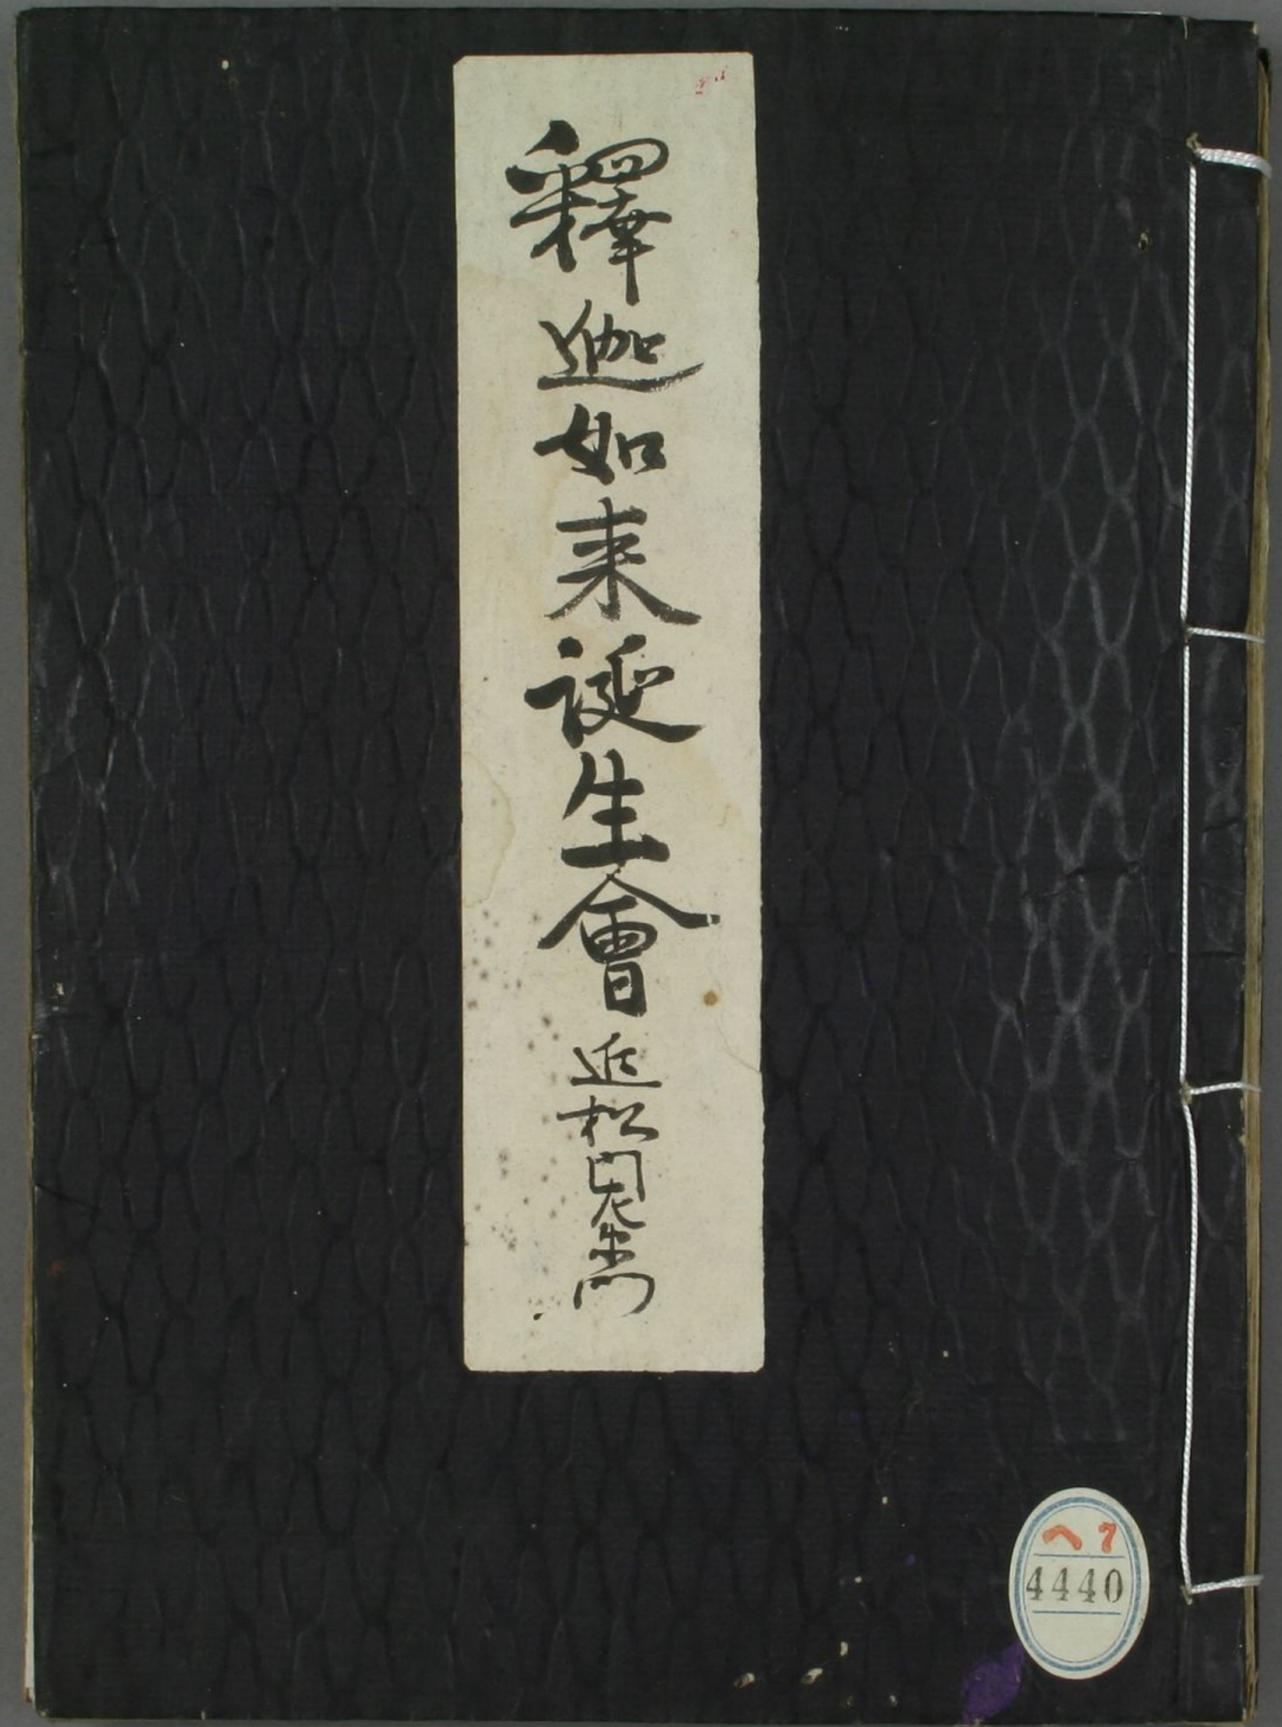 釋迦如来誕生會 近松門左衛門
ヘ7
4440